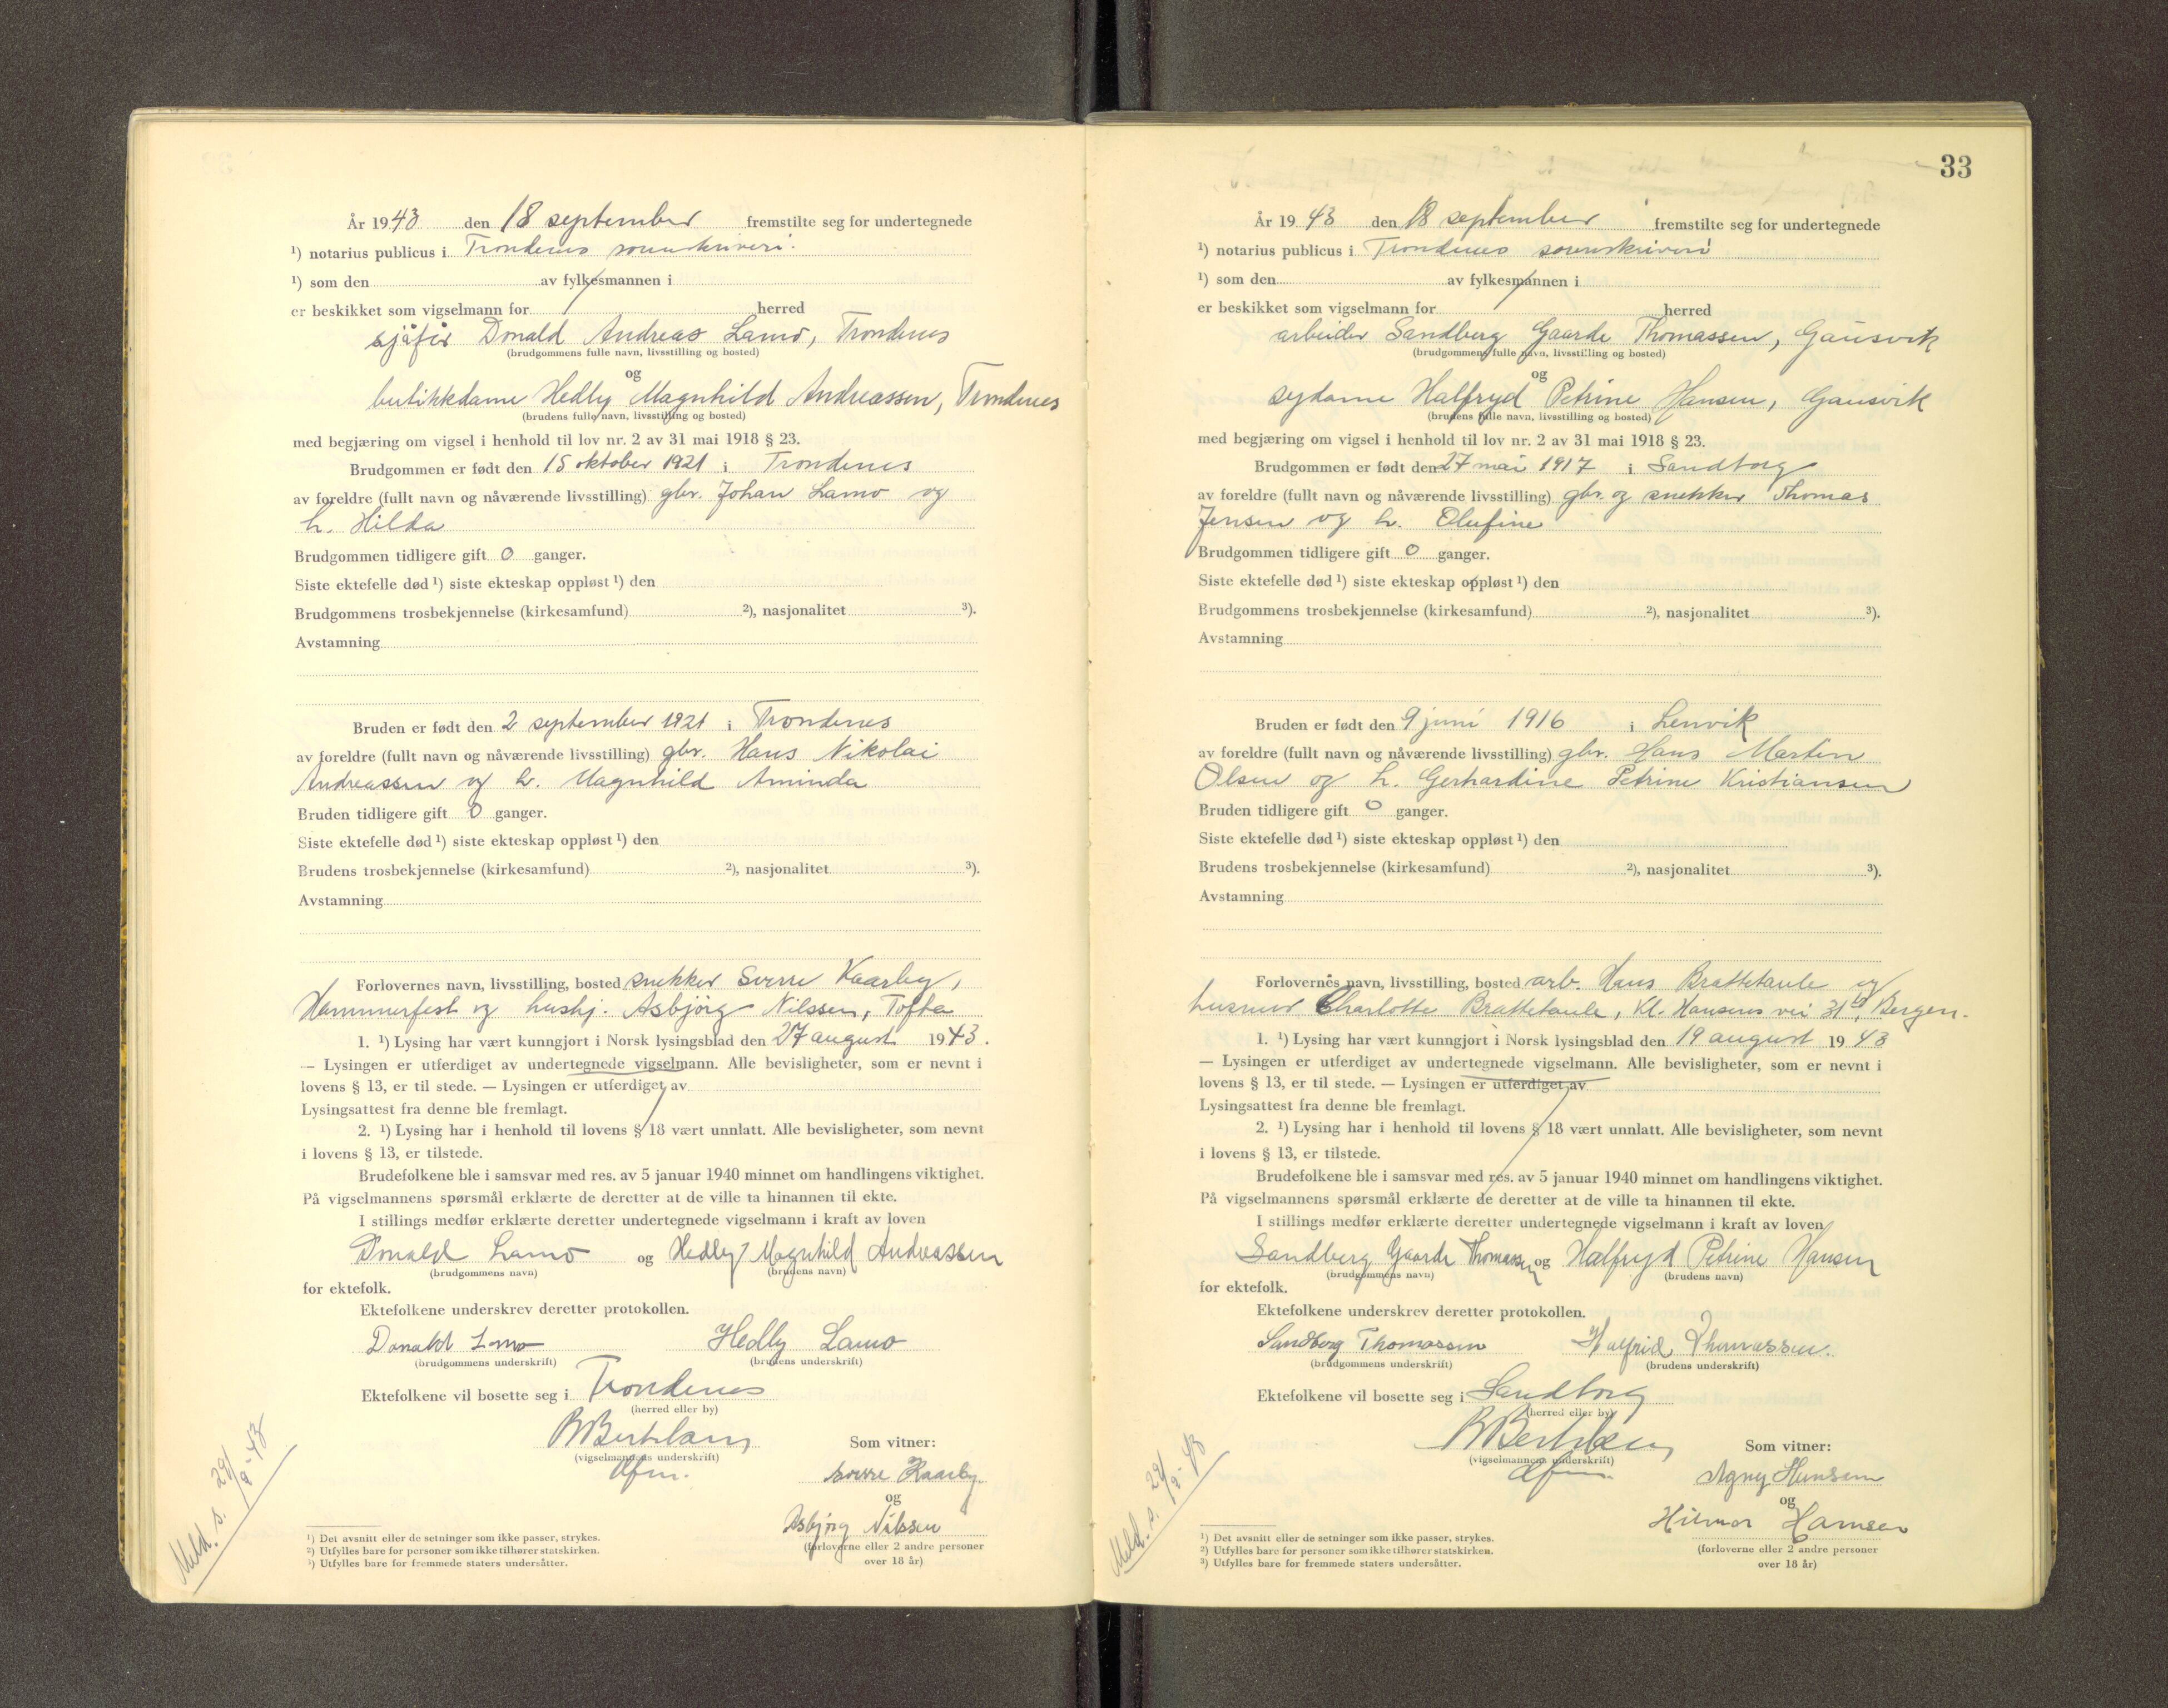 År 1943 den 18 september fremstilte seg for undertegnede
¹) notarius publicus i Trondenes sorenskriveri.
¹) som den av fylkesmannen i
er beskikket som vigselmann for herred
sjåfør Donald Andreas Lamo, Trondenes
(brudgommens fulle navn, livsstilling og bosted)
og
butikkdame Hedly Magnhild Andreassen, Trondenes
(brudens fulle navn, livsstilling og bosted)
med begjæring om vigsel i henhold til lov nr. 2 av 31 mai 1918 § 23.
Brudgommen er født den 15 oktober 1921 i Trondenes
av foreldre (fullt navn og nåværende livsstilling) gbr. Johan Lamo og
h. Hilda
Brudgommen tidligere gift 0 ganger.
Siste ektefelle død ¹) siste ekteskap oppløst ¹) den
Brudgommens trosbekjennelse (kirkesamfund) ²), nasjonalitet ³).
Avstamning
Bruden er født den 2 september 1921 i Trondenes
av foreldre (fullt navn og nåværende livsstilling) gbr. Hans Nikolai
Andreassen og h. Magnhild Aminda
Bruden tidligere gift 0 ganger.
Siste ektefelle død ¹) siste ekteskap oppløst ¹) den
Brudens trosbekjennelse (kirkesamfund) ²), nasjonalitet ³).
Avstamning
Forlovernes navn, livsstilling, bosted snekker Sverre Kaarby,
Hammerfest og hushj. Asbjörg Nilssen, Tofta
1. ¹) Lysing har vært kunngjort i Norsk lysingsblad den 27 august 1943.
— Lysingen er utferdiget av undertegnede vigselmann. Alle bevisligheter, som er nevnt i
lovens § 13, er til stede. — Lysingen er utferdiget av
Lysingsattest fra denne ble fremlagt.
2. ¹) Lysing har i henhold til lovens § 18 vært unnlatt. Alle bevisligheter, som nevnt
i lovens § 13, er tilstede.
Brudefolkene ble i samsvar med res. av 5 januar 1940 minnet om handlingens viktighet.
På vigselmannens spørsmål erklærte de deretter at de ville ta hinannen til ekte.
I stillings medfør erklærte deretter undertegnede vigselmann i kraft av loven
Donald Lamo og Hedly Magnhild Andreassen
(brudgommens navn) (brudens navn)
for ektefolk.
Ektefolkene underskrev deretter protokollen.
Donald Lamo Hedly Lamo
(brudgommens underskrift) (brudens underskrift)
Ektefolkene vil bosette seg i Trondenes
(herred eller by)
Som vitner:
(vigselmannens underskrift)
Sverre Kaarby.
og
Asbjørg Nilssen
(forloverne eller 2 andre personer
over 18 år)
Meld. s. 29/9-43
¹) Det avsnitt eller de setninger som ikke passer, strykes.
²) Utfylles bare for personer som ikke tilhører statskirken.
³) Utfylles bare for fremmede staters undersåtter.
33
År 1943 den 18 september fremstilte seg for undertegnede
¹) notarius publicus i Trondenes sorenskriveri
¹) som den av fylkesmannen i
er beskikket som vigselmann for herred
arbeider Sandberg Gaarde Thomassen, Gausvik
(brudgommens fulle navn, livsstilling og bosted)
og
sydame Halfryd Petrine Hansen, Gausvik
(brudens fulle navn, livsstilling og bosted)
med begjæring om vigsel i henhold til lov nr. 2 av 31 mai 1918 § 23.
Brudgommen er født den 27 mai 1917 i Sandtorg
av foreldre (fullt navn og nåværende livsstilling) gbr. og snekker Thomas
Jensen og h. Olufine
Brudgommen tidligere gift 0 ganger.
Siste ektefelle død ¹) siste ekteskap oppløst ¹) den
Brudgommens trosbekjennelse (kirkesamfund) ²), nasjonalitet ³).
Avstamning
Bruden er født den 9 juni 1916 i Lenvik
av foreldre (fullt navn og nåværende livsstilling) gbr. Hans Martin
Olsen og h. Gerhardine Petrine Kristiansen
Bruden tidligere gift 0 ganger.
Siste ektefelle død ¹) siste ekteskap oppløst ¹) den
Brudens trosbekjennelse (kirkesamfund) ²), nasjonalitet ³).
Avstamning
Forlovernes navn, livsstilling, bosted arb. Hans Brattetaule og
husmor Charlotte Brattetaule, Kl. Hansens vei 31b, Bergen.
1. ¹) Lysing har vært kunngjort i Norsk lysingsblad den 19 august 1943
— Lysingen er utferdiget av undertegnede vigselmann. Alle bevisligheter, som er nevnt i
lovens § 13, er til stede. — Lysingen er utferdiget av
Lysingsattest fra denne ble fremlagt.
2. ¹) Lysing har i henhold til lovens § 18 vært unnlatt. Alle bevisligheter, som nevnt
i lovens § 13, er tilstede.
Brudefolkene ble i samsvar med res. av 5 januar 1940 minnet om handlingens viktighet.
På vigselmannens spørsmål erklærte de deretter at de ville ta hinannen til ekte.
I stillings medfør erklærte deretter undertegnede vigselmann i kraft av loven
Sandberg Gaarde Thomassen og Halfryd Petrine Hansen
(brudgommens navn) (brudens navn)
for ektefolk.
Ektefolkene underskrev deretter protokollen.
Sandberg Thomassen Halfrid Thomassen.
(brudgommens underskrift) (brudens underskrift)
Ektefolkene vil bosette seg i Sandtorg
(herred eller by)
Som vitner:
(vigselmannens underskrift)
Agny Hansen
og
Hilmar Hansen
(forloverne eller 2 andre personer
over 18 år)
Meld. s. 29/9-43
¹) Det avsnitt eller de setninger som ikke passer, strykes.
²) Utfylles bare for personer som ikke tilhører statskirken.
³) Utfylles bare for fremmede staters undersåtter.